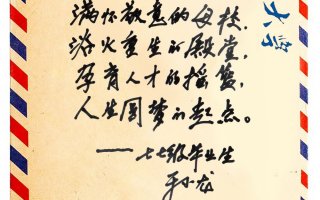 满怀敬意的母校，
浴火重生的殿堂，
孕育人才的摇篮，
人生圆梦的起点。
——七七级毕业生
小龙
大学